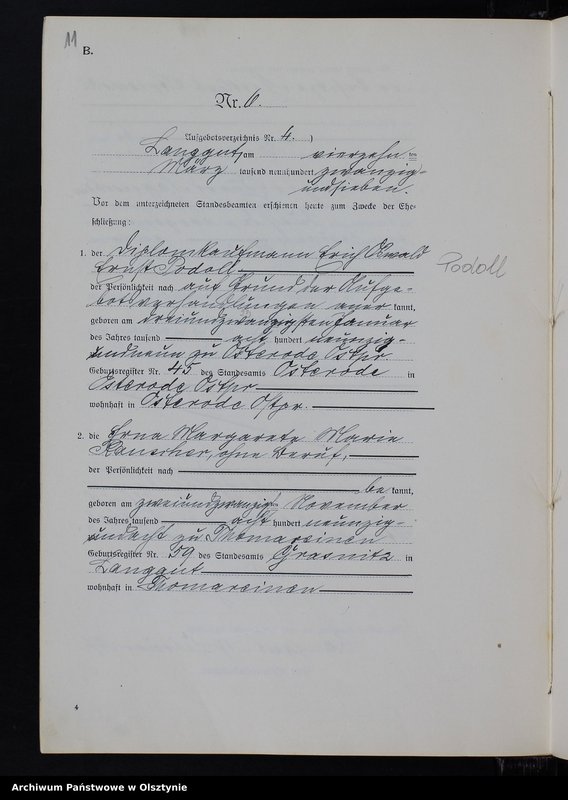 11
B.
Nr. 6.
Aufgebotsverzeichnis Nr. 4. )
Langgut, am vierzehn ten
März tausend neunhundert zwanzig-
undsieben.
Vor dem unterzeichneten Standesbeamten erschienen heute zum Zwecke der Ehe-
schließung:
1. der Diplomkaufmann Erich Oswald
Ernst Podoll
Podoll
der Persönlichkeit nach auf Grund der Aufge-
botsverhandlungen aner kannt,
geboren am dreiundzwanzigsten Januar
des Jahres tausend acht hundert neunzig-
undneun zu Osterode Ostpr.
Geburtsregister Nr. 45 des Standesamts Osterode in
Osterode Ostpr.
wohnhaft in Osterode Ostpr.
2. die Erna Margarete Marie
ohne Beruf,
der Persönlichkeit nach
be kannt,
geboren am zweiundzwanzigsten November
des Jahres tausend acht hundert neunzig-
undacht zu Thomareinen
Geburtsregister Nr. 59 des Standesamts Grasnitz in
Langgut
wohnhaft in Thomareinen
4
Archiwum Państwowe w Olsztynie